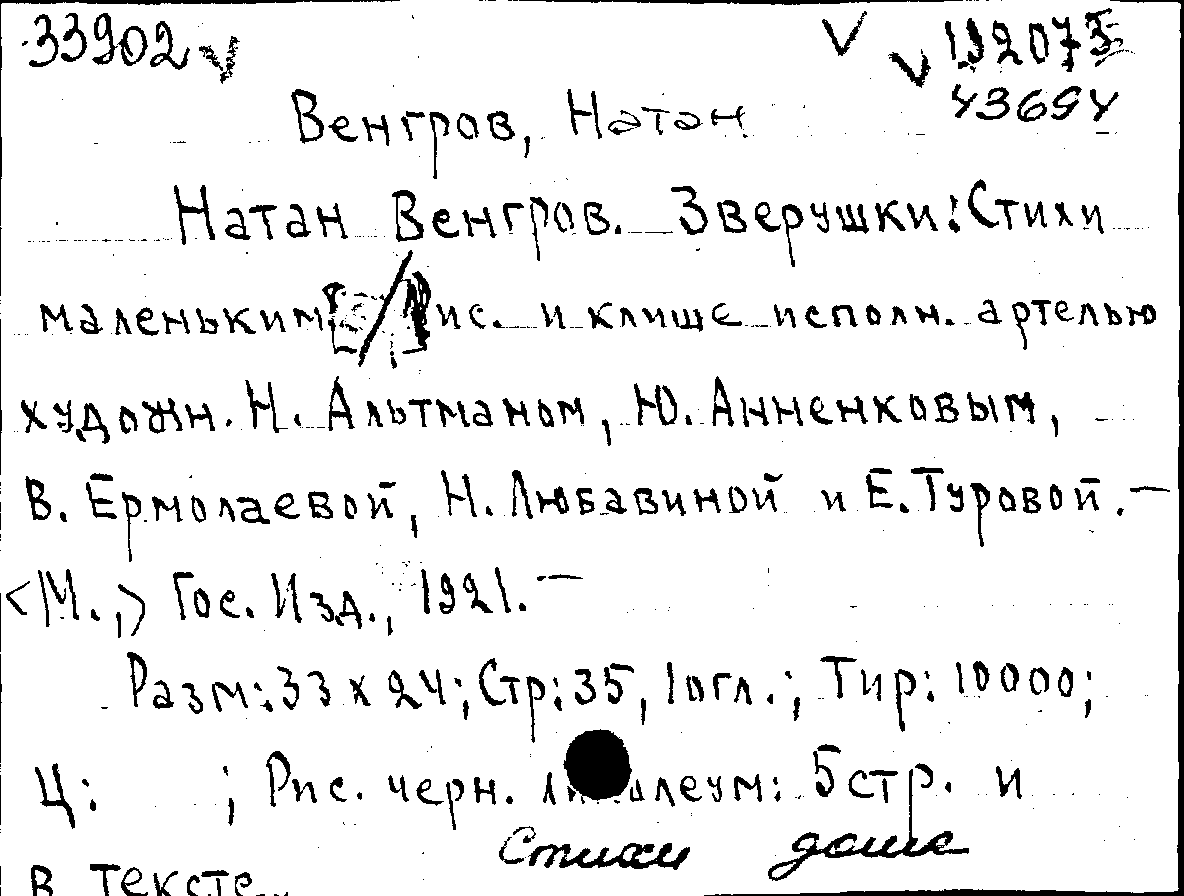 33902 V V V
43694
Венгров, Натан
Натан Венгров. Зверушки: Стихи
маленьким / Рис. и клише исполн. артелью
художн. Н. Альтманом, Ю. Анненковым,
В. Ермолаевой, Н. Любавиной и Е. Туровой. —
<М.,> Гос. Изд., 1921. —
Разм: 33 x 24; Стр: 35, 1 огл.; Тир: 10000;
Ц: ; Рис. черн. линолеум: 5 стр. и
Стихи дошк
в тексте.